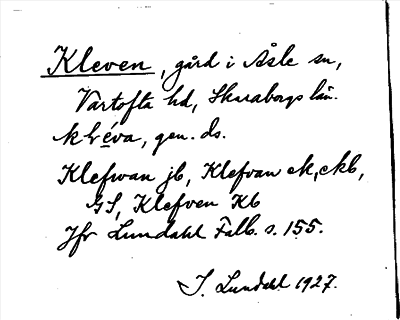 Kleven, gård i Åsle sn,
Vartofta hd, Skaraborgs län.
kléva, gen. ds.
Klefwan jb, Klefvan ek, ekb,
GS, Klefven Kb
Jfr Lundahl Falb. s. 155.
I. Lundahl 1927.